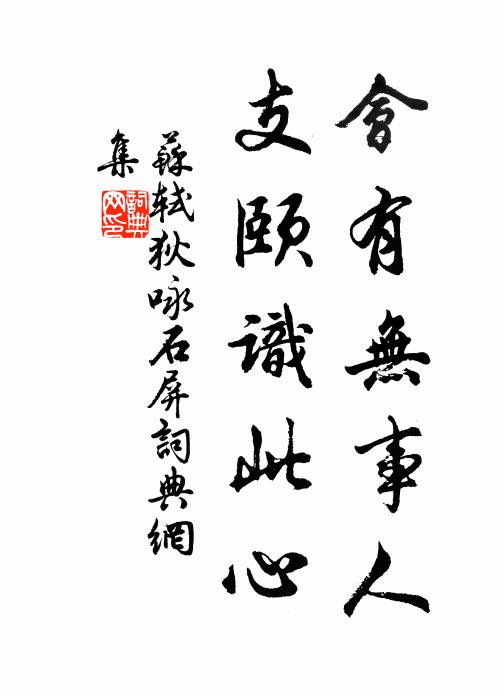 會有無事人
支頤識此心
蘇軾狄咏石屏詞典網
集
詞典网印